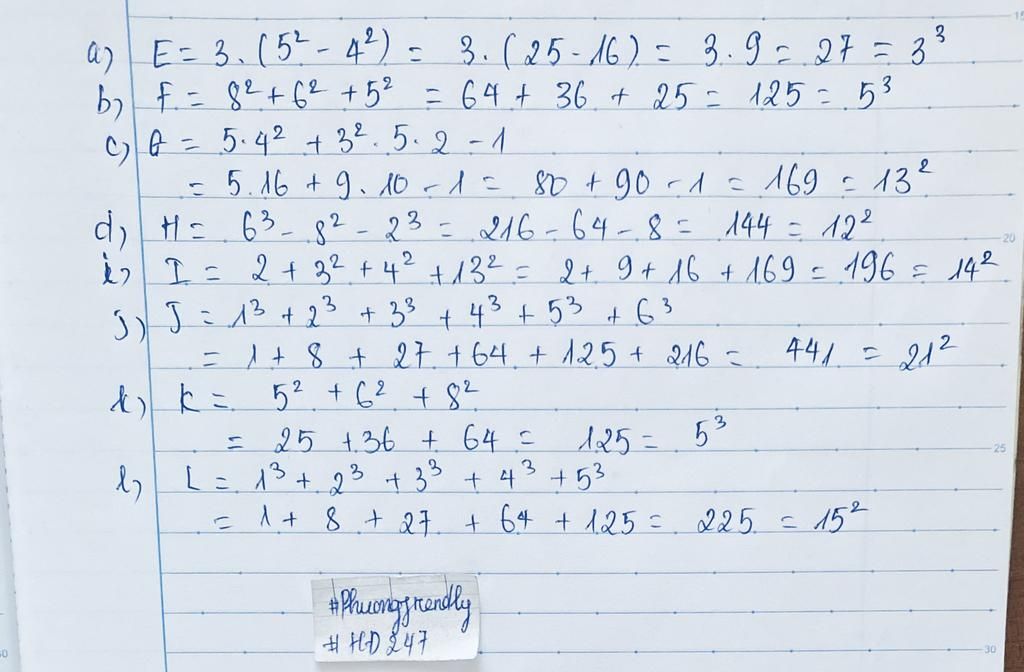 a) E = 3.(5² - 4²) = 3.(25 - 16) = 3.9 = 27 = 3³
b) F = 8² + 6² + 5² = 64 + 36 + 25 = 125 = 5³
c) G = 5.4² + 3².5.2 - 1
= 5.16 + 9.10 - 1 = 80 + 90 - 1 = 169 = 13²
d) H = 6³ - 8² - 2³ = 216 - 64 - 8 = 144 = 12²
i) I = 2 + 3² + 4² + 13² = 2 + 9 + 16 + 169 = 196 = 14²
j) J = 1³ + 2³ + 3³ + 4³ + 5³ + 6³
= 1 + 8 + 27 + 64 + 125 + 216 = 441 = 21²
k) K = 5² + 6² + 8²
= 25 + 36 + 64 = 125 = 5³
l) L = 1³ + 2³ + 3³ + 4³ + 5³
= 1 + 8 + 27 + 64 + 125 = 225 = 15²
#Phuongfrendly
#HD247
15
20
25
30